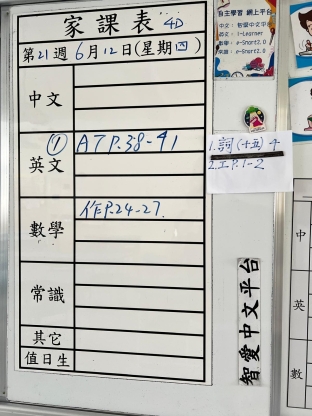 家課表 4D
第21週6月12日(星期四)
中文
① A TP.38-41
英文
作P.24-27.
數學
常識
其它
值日生
自主學習 網上平台
中文: 智愛中文平台
英文: i-Learner
數學: e-Smart2.0
常識: e-Smart2.0
1.詞(十五)4
2.工P.1-2
智愛中文平台
中
英
數